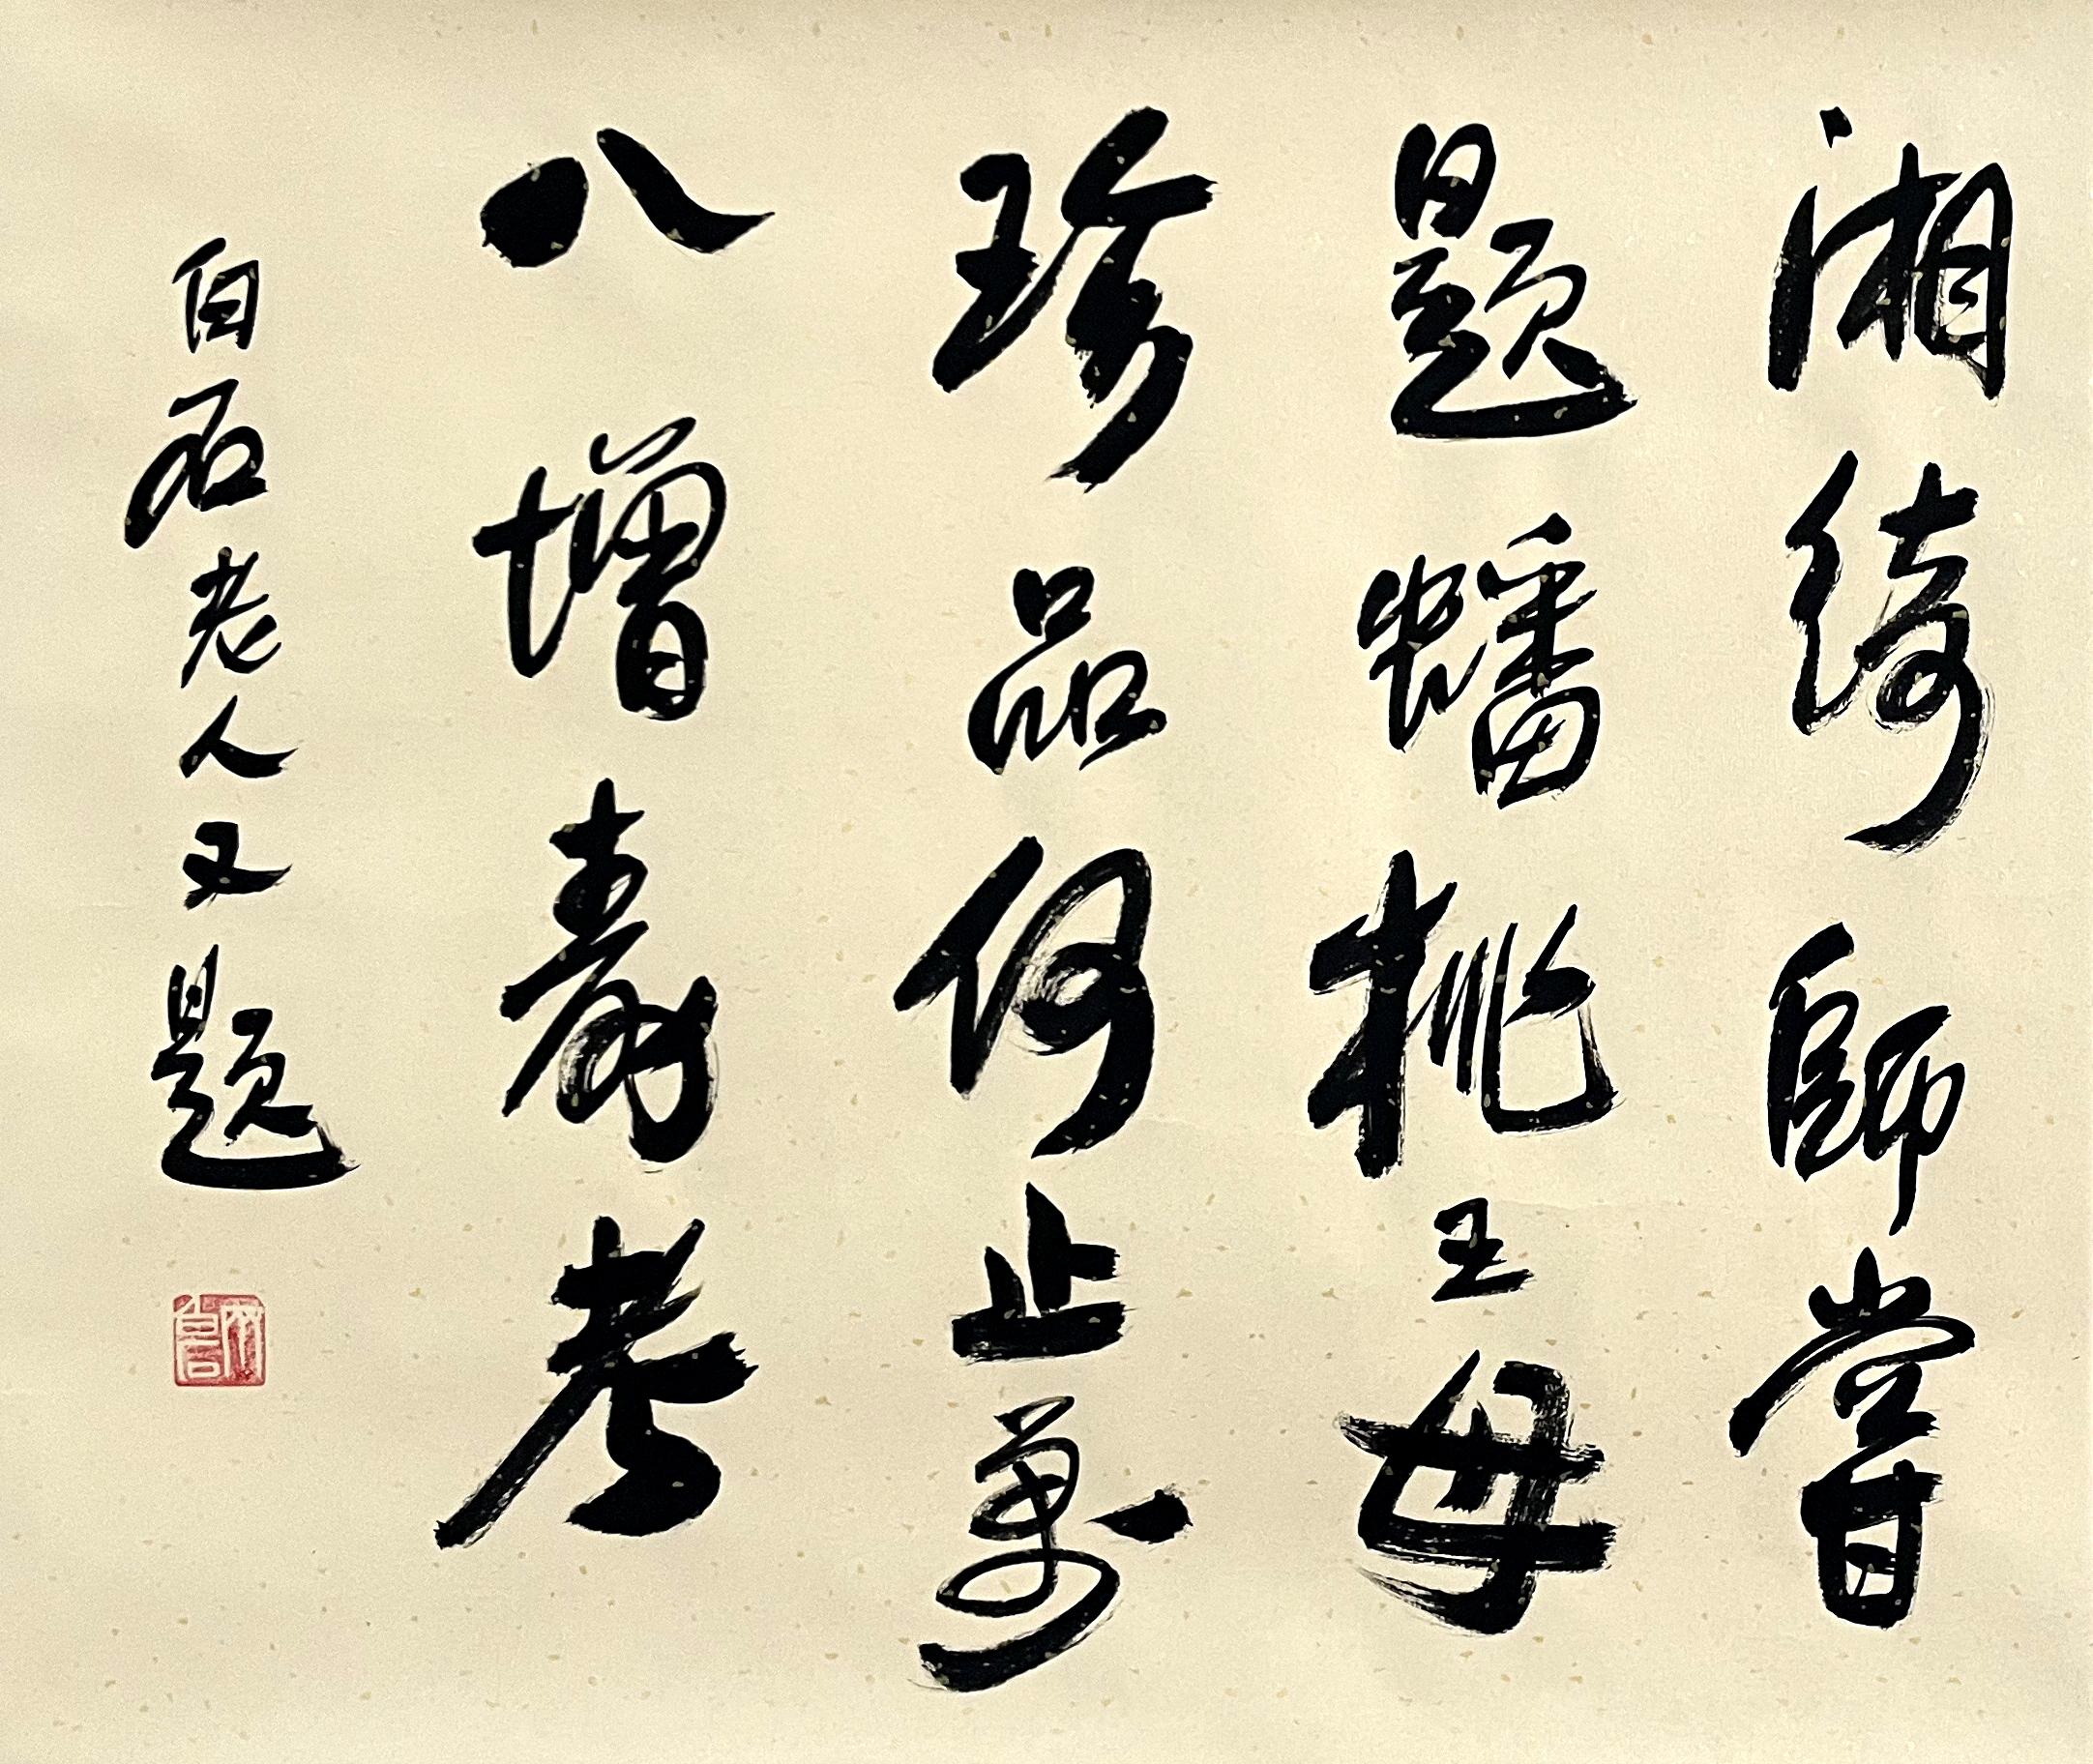 湘綺師嘗
題蟠桃王母
珍品何止萬
八增壽考
白石老人又題